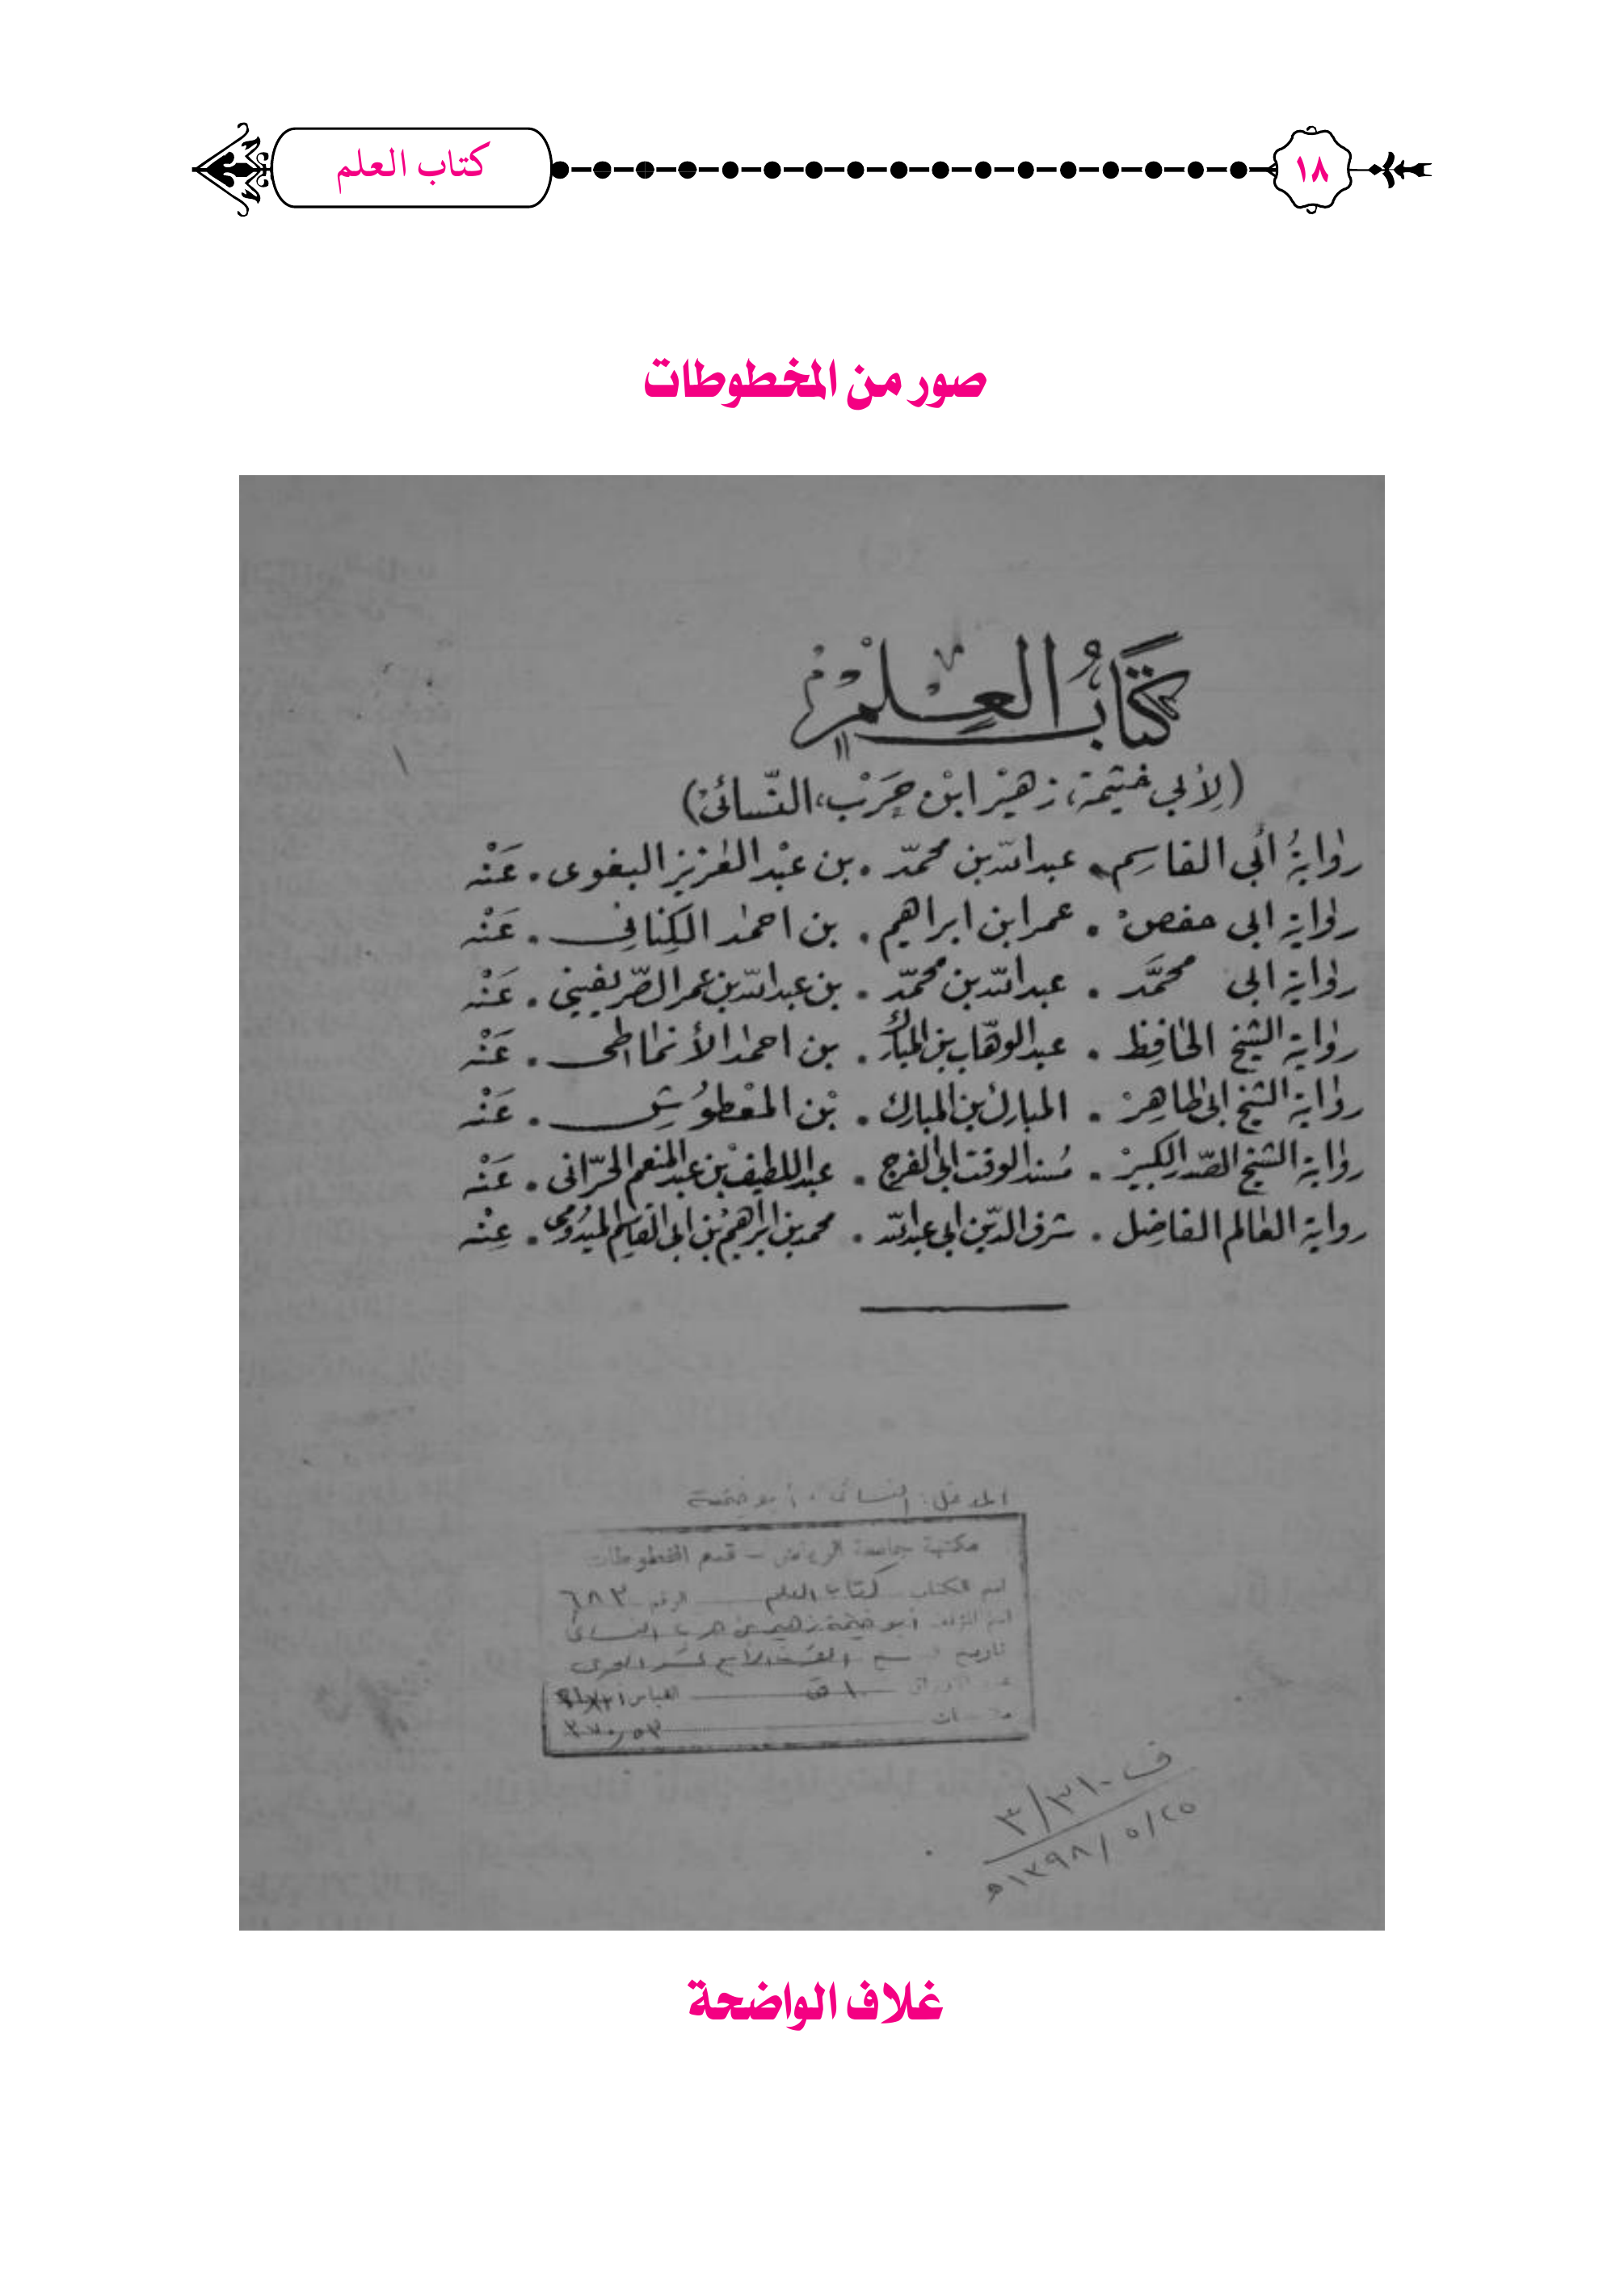 ١٨
كتاب العلم
صور من المخطوطات
كتابُ العِلم
(لأبي خيثمة، زهير ابن حَرْب، النّسائي)
روايةُ أبي القاسم . عبد الله بن محمّد . بن عبْد العزيز البغوى . عَنْه
رواية ابى حفص . عمر ابن ابراهيم . بن احمد الكِنانى . عَنْه
رواية ابى محمَّد . عبد الله بن محمّد . بن عبد الله بن عمر الصّريفيني . عَنْه
رواية الشيخ الحافِظ . عبد الوهّاب بن المبارك . بن احمد الأنماطى . عَنْه
رواية الشيخ ابى طاهِر . المبارك بن المبارك . بْن المعْطوُش . عَنْه
رواية الشيخ الصّدر الكبير . مُسند الوقت ابى الفرج . عبد اللطيف بن عبد المنعم الحرّانى . عَنْه
رواية العالم الفاضِل . شرف الدّين ابى عبد الله . محمد بن ابراهيم بن ابى القاسم الميدُومى . عِنْه
المدخل: النسائى، أبو خيثمة
مكتبة جامعة الرياض - قسم المخطوطات
اسم الكتاب كتاب العلم الرقم ٦٨٣
اسم المؤلف أبو خيثمة زهير بن حرب النسائى
تاريخ النسخ القرن الرابع عشر الهجرى
عدد الأوراق ١٠ ق القياس
ف ٣/٣١٠
٢٥/٥/١٣٩٨هـ
غلاف الواضحة